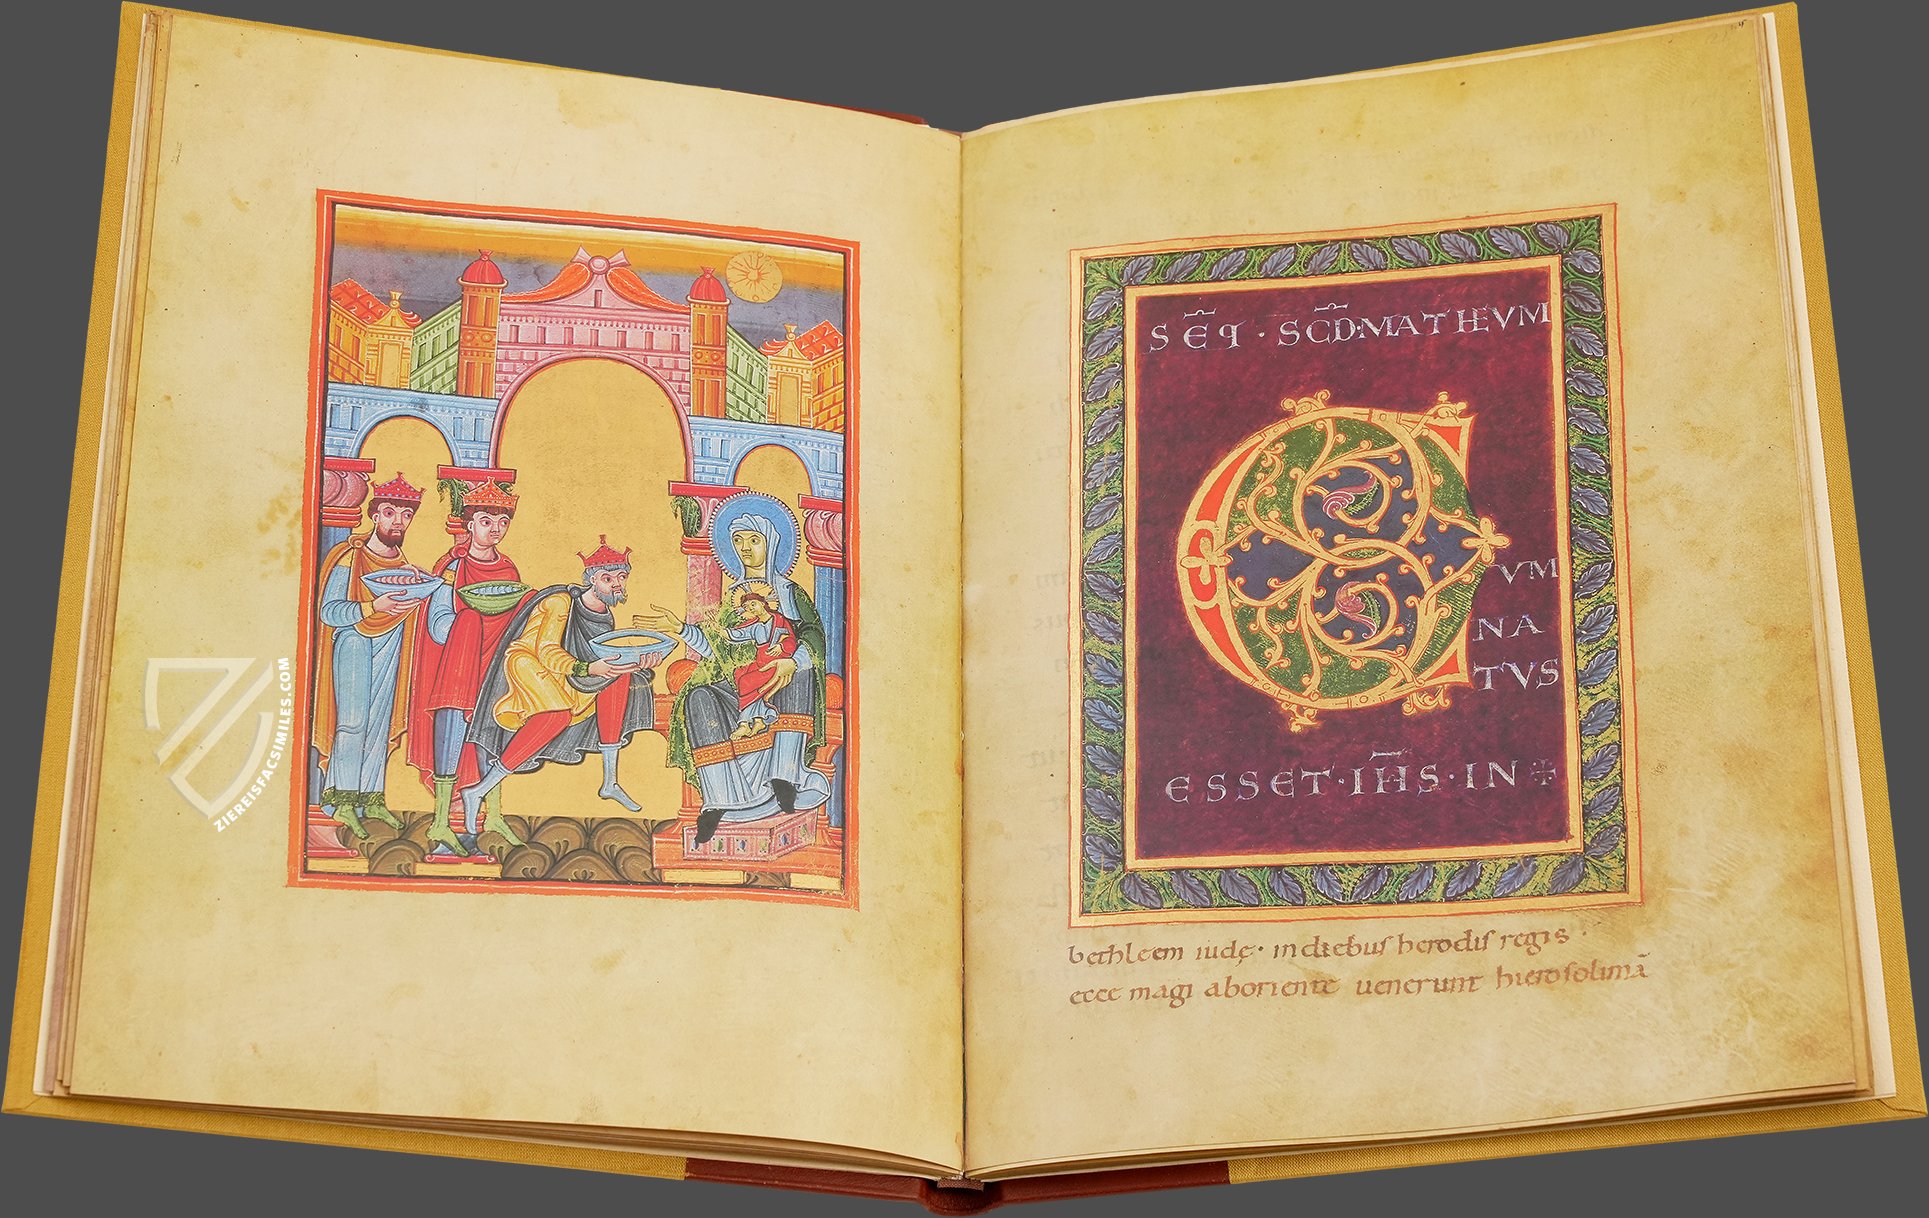 ZIEREISFACSIMILES.COM
SEꝗ · SC̄D·MATHEVM
C
VM
NA
TVS
ESSET·IH̄S·IN
bethleem iudę· in diebus herodis regis ·
ecce magi aboriente uenerunt hierosolimā